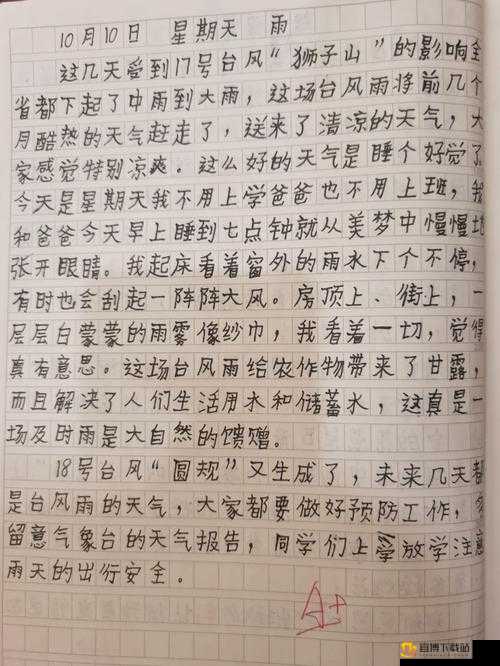 10月10日 星期天 雨
这几天受到17号台风“狮子山”的影响全
省都下起了中雨到大雨，这场台风雨将前几个
月酷热的天气赶走了，送来了清凉的天气，大
家感觉特别凉爽。这么好的天气是睡个好觉了。
今天是星期天我不用上学爸爸也不用上班，我
和爸爸今天早上睡到七点钟就从美梦中慢慢地
张开眼睛。我起床看着窗外的雨水下个不停，
有时也会刮起一阵阵大风。房顶上、街上，一
层层白蒙蒙的雨雾像纱巾，我看着一切，觉得
真有意思。这场台风雨给农作物带来了甘露，
而且解决了人们生活用水和储蓄水，这真是一
场及时雨是大自然的馈赠。
18号台风“圆规”又生成了，未来几天都
是台风雨的天气，大家都要做好预防工作，
留意气象台的天气报告，同学们上学放学注意
雨天的出行安全。
A+
宜博下载站